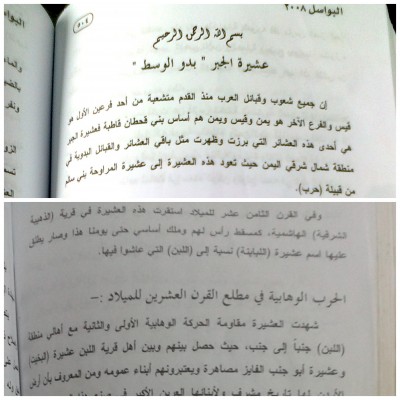 البواسل ٢٠٠٨
٥٠٤
بسم الله الرحمن الرحيم
عشيرة الجبر " بدو الوسط "
إن جميع شعوب وقبائل العرب منذ القدم متشعبة من أحد فرعين الأول هو
قيس والفرع الآخر هو يمن وقيس ويمن هم أساس بني قحطان قاطبة فعشيرة الجبر
هي أحدى هذه العشائر التي برزت وظهرت مثل باقي العشائر والقبائل البدوية في
منطقة شمال شرقي اليمن حيث تعود هذه العشيرة إلى عشيرة المراوحة بني سالم
من قبيلة (حرب).
وفي القرن الثامن عشر للميلاد استقرت هذه العشيرة في قرية (الذهيبة
الشرقية) الهاشمية، كمسقط رأس لهم وملك أساسي حتى يومنا هذا وصار يطلق
عليها اسم عشيرة (اللبابنة) نسبة إلى (اللبن) التي عاشوا فيها.
الحرب الوهابية في مطلع القرن العشرين للميلاد :-
شهدت العشيرة مقاومة الحركة الوهابية الأولى والثانية مع أهالي منطقة
(اللبن) جنباً إلى جنب، حيث حصل بينهم وبين أهل قرية اللبن عشيرة (البخيت)
وعشيرة أبو جنب الفايز مصاهرة ويعتبرونهم أبناء عمومه ومن المعروف بأن أرض
الأردن لها تاريخ مشرف ولأبنائها العرين الأكبر في